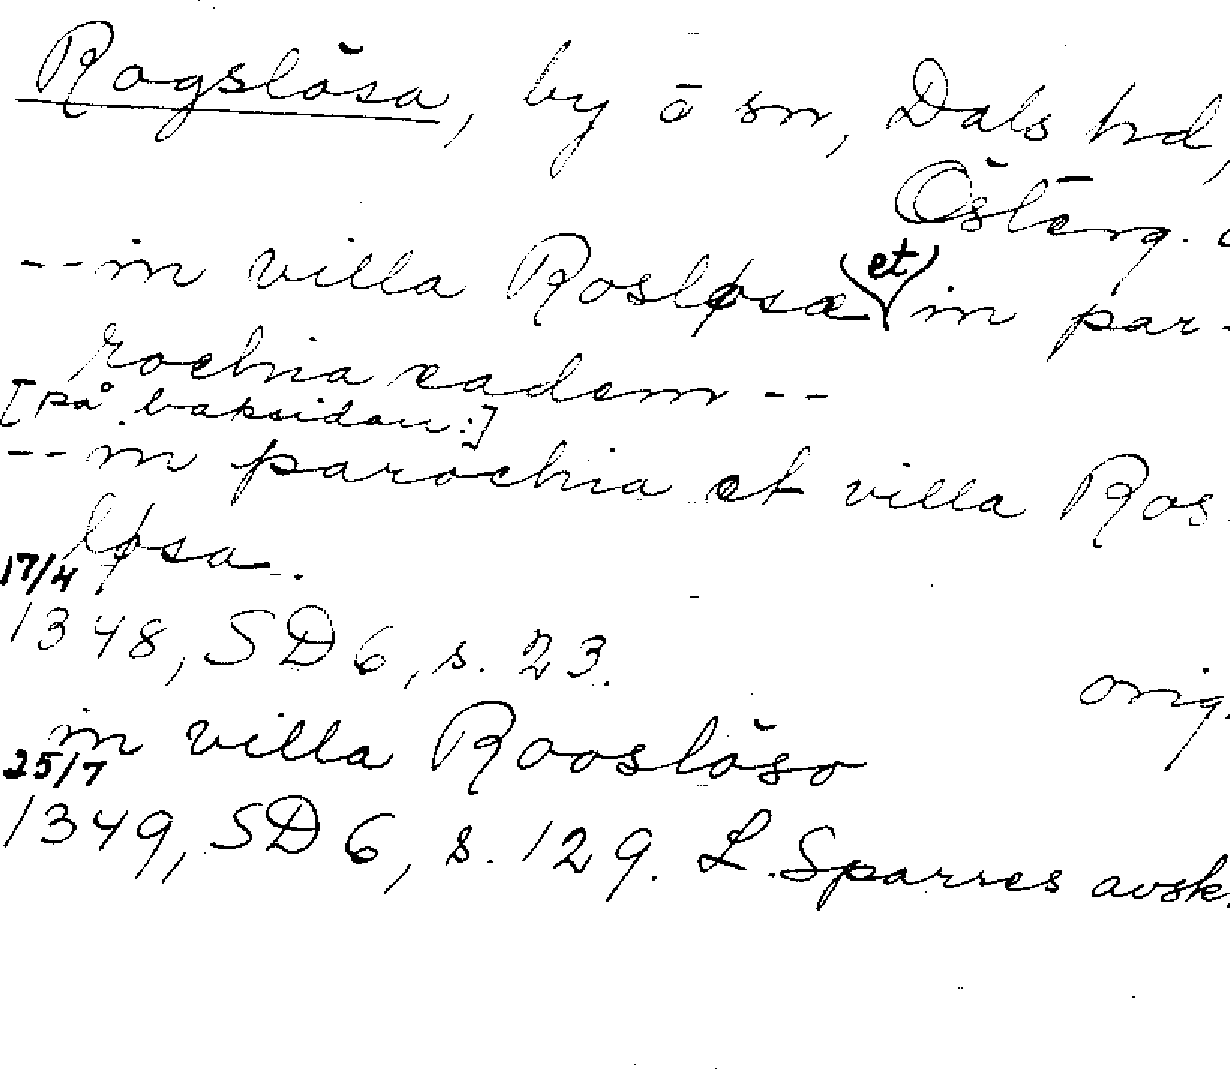 Rogslösa, by o sn, Dals hd,
Österg.
--in villa Rosløsæ (et) in par-
rochia eadem --
[på baksidan:]
--in parochia et villa Ros-
løsa.
17/4
1348, SD 6, s. 23. orig.
in villa Rooslöso
25/7
1349, SD 6, s. 129. L. Sparres avskr.